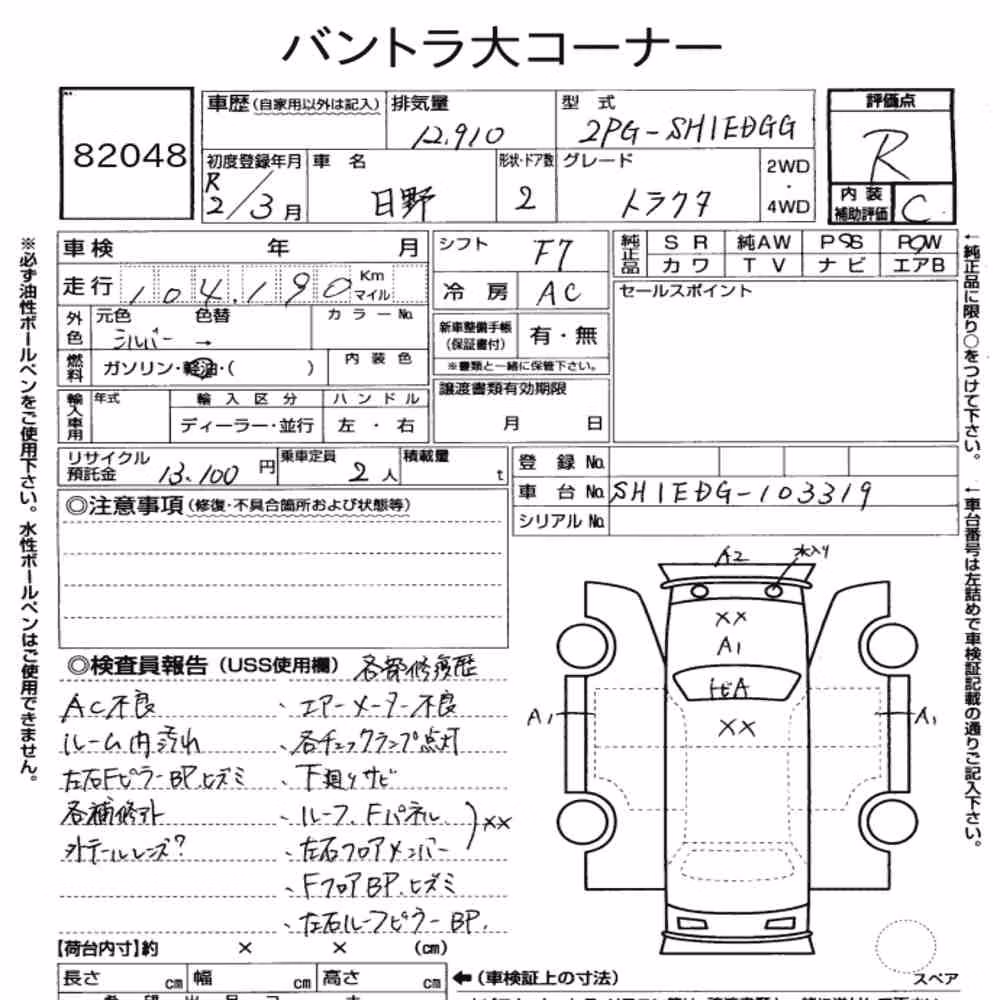 バントラ大コーナー
82048
車歴(自家用以外は記入)
排気量
12,910
型式
2PG-SH1EDGG
評価点
R
初度登録年月
R2/3月
車名
日野
形状・ドア数
2
グレード
トラクタ
2WD
・
4WD
内装
補助評価
C
車検 年 月
シフト
F7
純正品
SR 純AW PSS POW
カワ TV ナビ エアB
走行 104,190 Km
マイル
冷房
AC
セールスポイント
外色
元色 色替
シルバー →
カラーNo.
新車整備手帳
(保証書付)
有・無
※書類と一緒に保管下さい。
燃料
ガソリン・軽油・( )
内装色
譲渡書類有効期限
月 日
輸入車用
年式
輸入区分
ハンドル
ディーラー・並行
左・右
リサイクル
預託金
13,100円
乗車定員
2人
積載量
t
登録No.
車台No. SH1EDG-103319
シリアルNo.
◎注意事項(修復・不具合箇所および状態等)
◎検査員報告(USS使用欄) 各部修復歴
AC不良 、エアーメーター不良
ルーム内汚れ 、各チェックランプ点灯
左右FピラーBP.ヒズミ 、下廻りサビ
各補修跡 、ルーフ、Fパネル
外テールレンズ? 、左右フロアメンバー ××
、FフロアBP.ヒズミ
、左右ルーフピラーBP.
A2
水入り
××
A1
トビA
××
A1
A1
【荷台内寸】約 × × (cm)
長さ cm 幅 cm 高さ cm
←(車検証上の寸法)
スペア
※必ず油性ボールペンをご使用下さい。水性ボールペンはご使用できません。
←純正品に限り○をつけて下さい。
←車台番号は左詰めで車検証記載の通りご記入下さい。